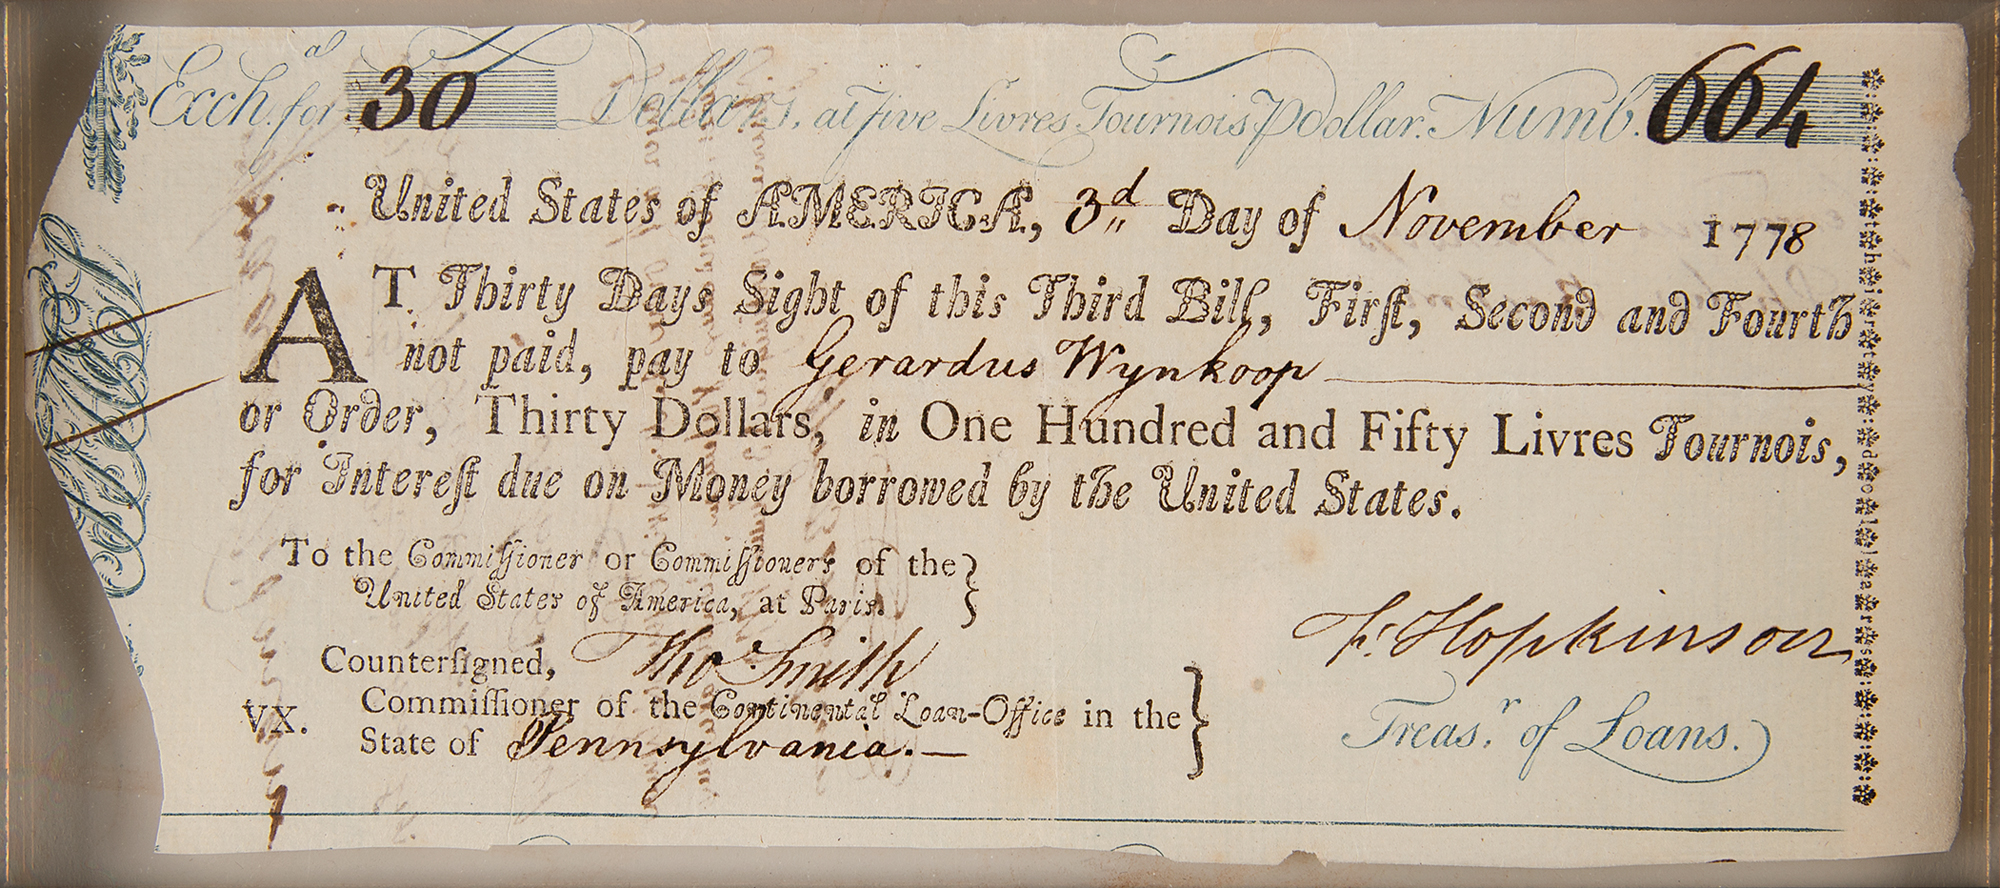 Exch.al for 30 Dollars, at five Livres Tournois ⅌ dollar. Numb. 664
United States of AMERICA, 3d Day of November 1778
AT Thirty Days Sight of this Third Bill, Firſt, Second and Fourth
not paid, pay to Gerardus Wynkoop
or Order, Thirty Dollars, in One Hundred and Fifty Livres Tournois,
for Intereſt due on Money borrowed by the United States.
To the Commiſſioner or Commiſſioners of the }
United States of America, at Paris.
Counterſigned, Tho. Smith
F: Hopkinson
VX. Commiſſioner of the Continental Loan-Office in the }
State of Pennsylvania.—
Treas.r of Loans.
:thirty:dollars: